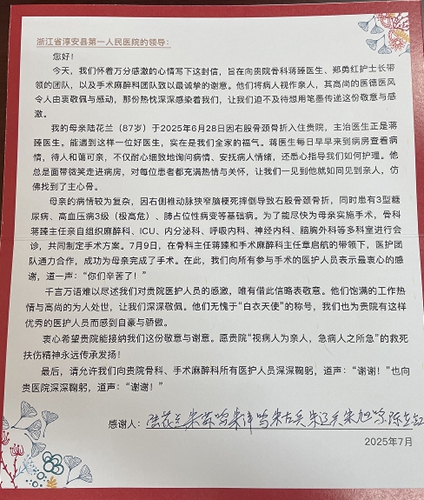 浙江省淳安县第一人民医院的领导：
您好！
今天，我们怀着万分感激的心情写下这封信，旨在向贵院骨科蒋臻医生、郑勇红护士长带
领的团队，以及手术麻醉科团队致以最诚挚的谢意。他们将病人视作亲人，其高尚的医德医风
令人由衷敬佩与感动，那份热忱深深感染着我们，让我们迫不及待想用笔墨传递这份敬意与感
激。
我的母亲陆花兰（87岁）于2025年6月28日因右股骨颈骨折入住贵院，主治医生正是蒋
臻医生。能遇到这样一位好医生，实在是我们全家的福气。蒋医生每日早早来到病房查看病
情，待人和蔼可亲，不仅耐心细致地询问病情、安抚病人情绪，还悉心指导我们如何护理。他
总是面带微笑走进病房，对每位患者都充满热情与关怀，让我们一见到他就如同见到亲人，仿
佛找到了主心骨。
母亲的病情较为复杂，因右侧椎动脉狭窄脑梗死摔倒导致右股骨颈骨折，同时患有3型糖
尿病、高血压病3级（极高危）、肺占位性病变等基础病。为了能尽快为母亲实施手术，骨科
蒋臻主任亲自组织麻醉科、ICU、内分泌科、呼吸内科、神经内科、脑胸外科等多科室进行会
诊，共同制定手术方案。7月9日，在骨科主任蒋臻和手术麻醉科主任章启航的带领下，医护团
队通力合作，成功为母亲完成了手术。在此，我们向所有参与手术的医护人员表示最衷心的感
谢，道一声：“你们辛苦了！”
千言万语难以尽述我们对贵院医护人员的感激，唯有借此信略表敬意。他们饱满的工作热
情与高尚的为人处世，让我们深深敬佩。他们无愧于“白衣天使”的称号，我们也为贵院有这样
优秀的医护人员而感到自豪与骄傲。
衷心希望贵院能接纳我们这份敬意与谢意。愿贵院“视病人为亲人，急病人之所急”的救死
扶伤精神永远传承发扬！
最后，请允许我们向贵院骨科、手术麻醉科所有医护人员深深鞠躬，道声：“谢谢！”也向
贵医院深深鞠躬，道声：“谢谢！”
感谢人：陆花兰
2025年7月